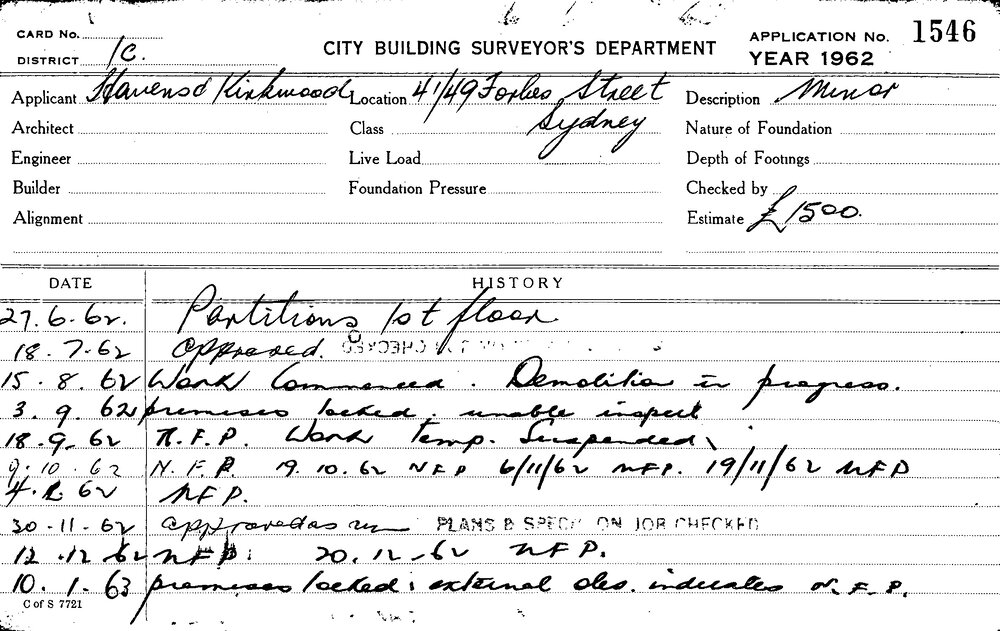 CARD No.
DISTRICT 1C.
CITY BUILDING SURVEYOR'S DEPARTMENT
APPLICATION No. 1546
YEAR 1962
Applicant Kirkwood Location 41/49 Forbes Street Sydney Description Minor
Architect Class Nature of Foundation
Engineer Live Load Depth of Footings
Builder Foundation Pressure Checked by
Alignment Estimate £1500.
DATE HISTORY
27.6.62. Partitions 1st floor
18.7.62 approved. CHECKED
15.8.62 Work Commenced. Demolition in progress.
3.9.62 premises locked. unable inspect
18.9.62 N.F.P. Work Temp. Suspended
9.10.62 N.F.P. 19.10.62 NFP 6/11/62 NFP. 19/11/62 NFP
62 NFP.
30-11-62 approved as PLANS & SPEC ON JOB CHECKED
12.12.62 NFP. 20.12.62 NFP.
10.1.63 premises locked: external obs. indicates N.F.P.
C of S 7721